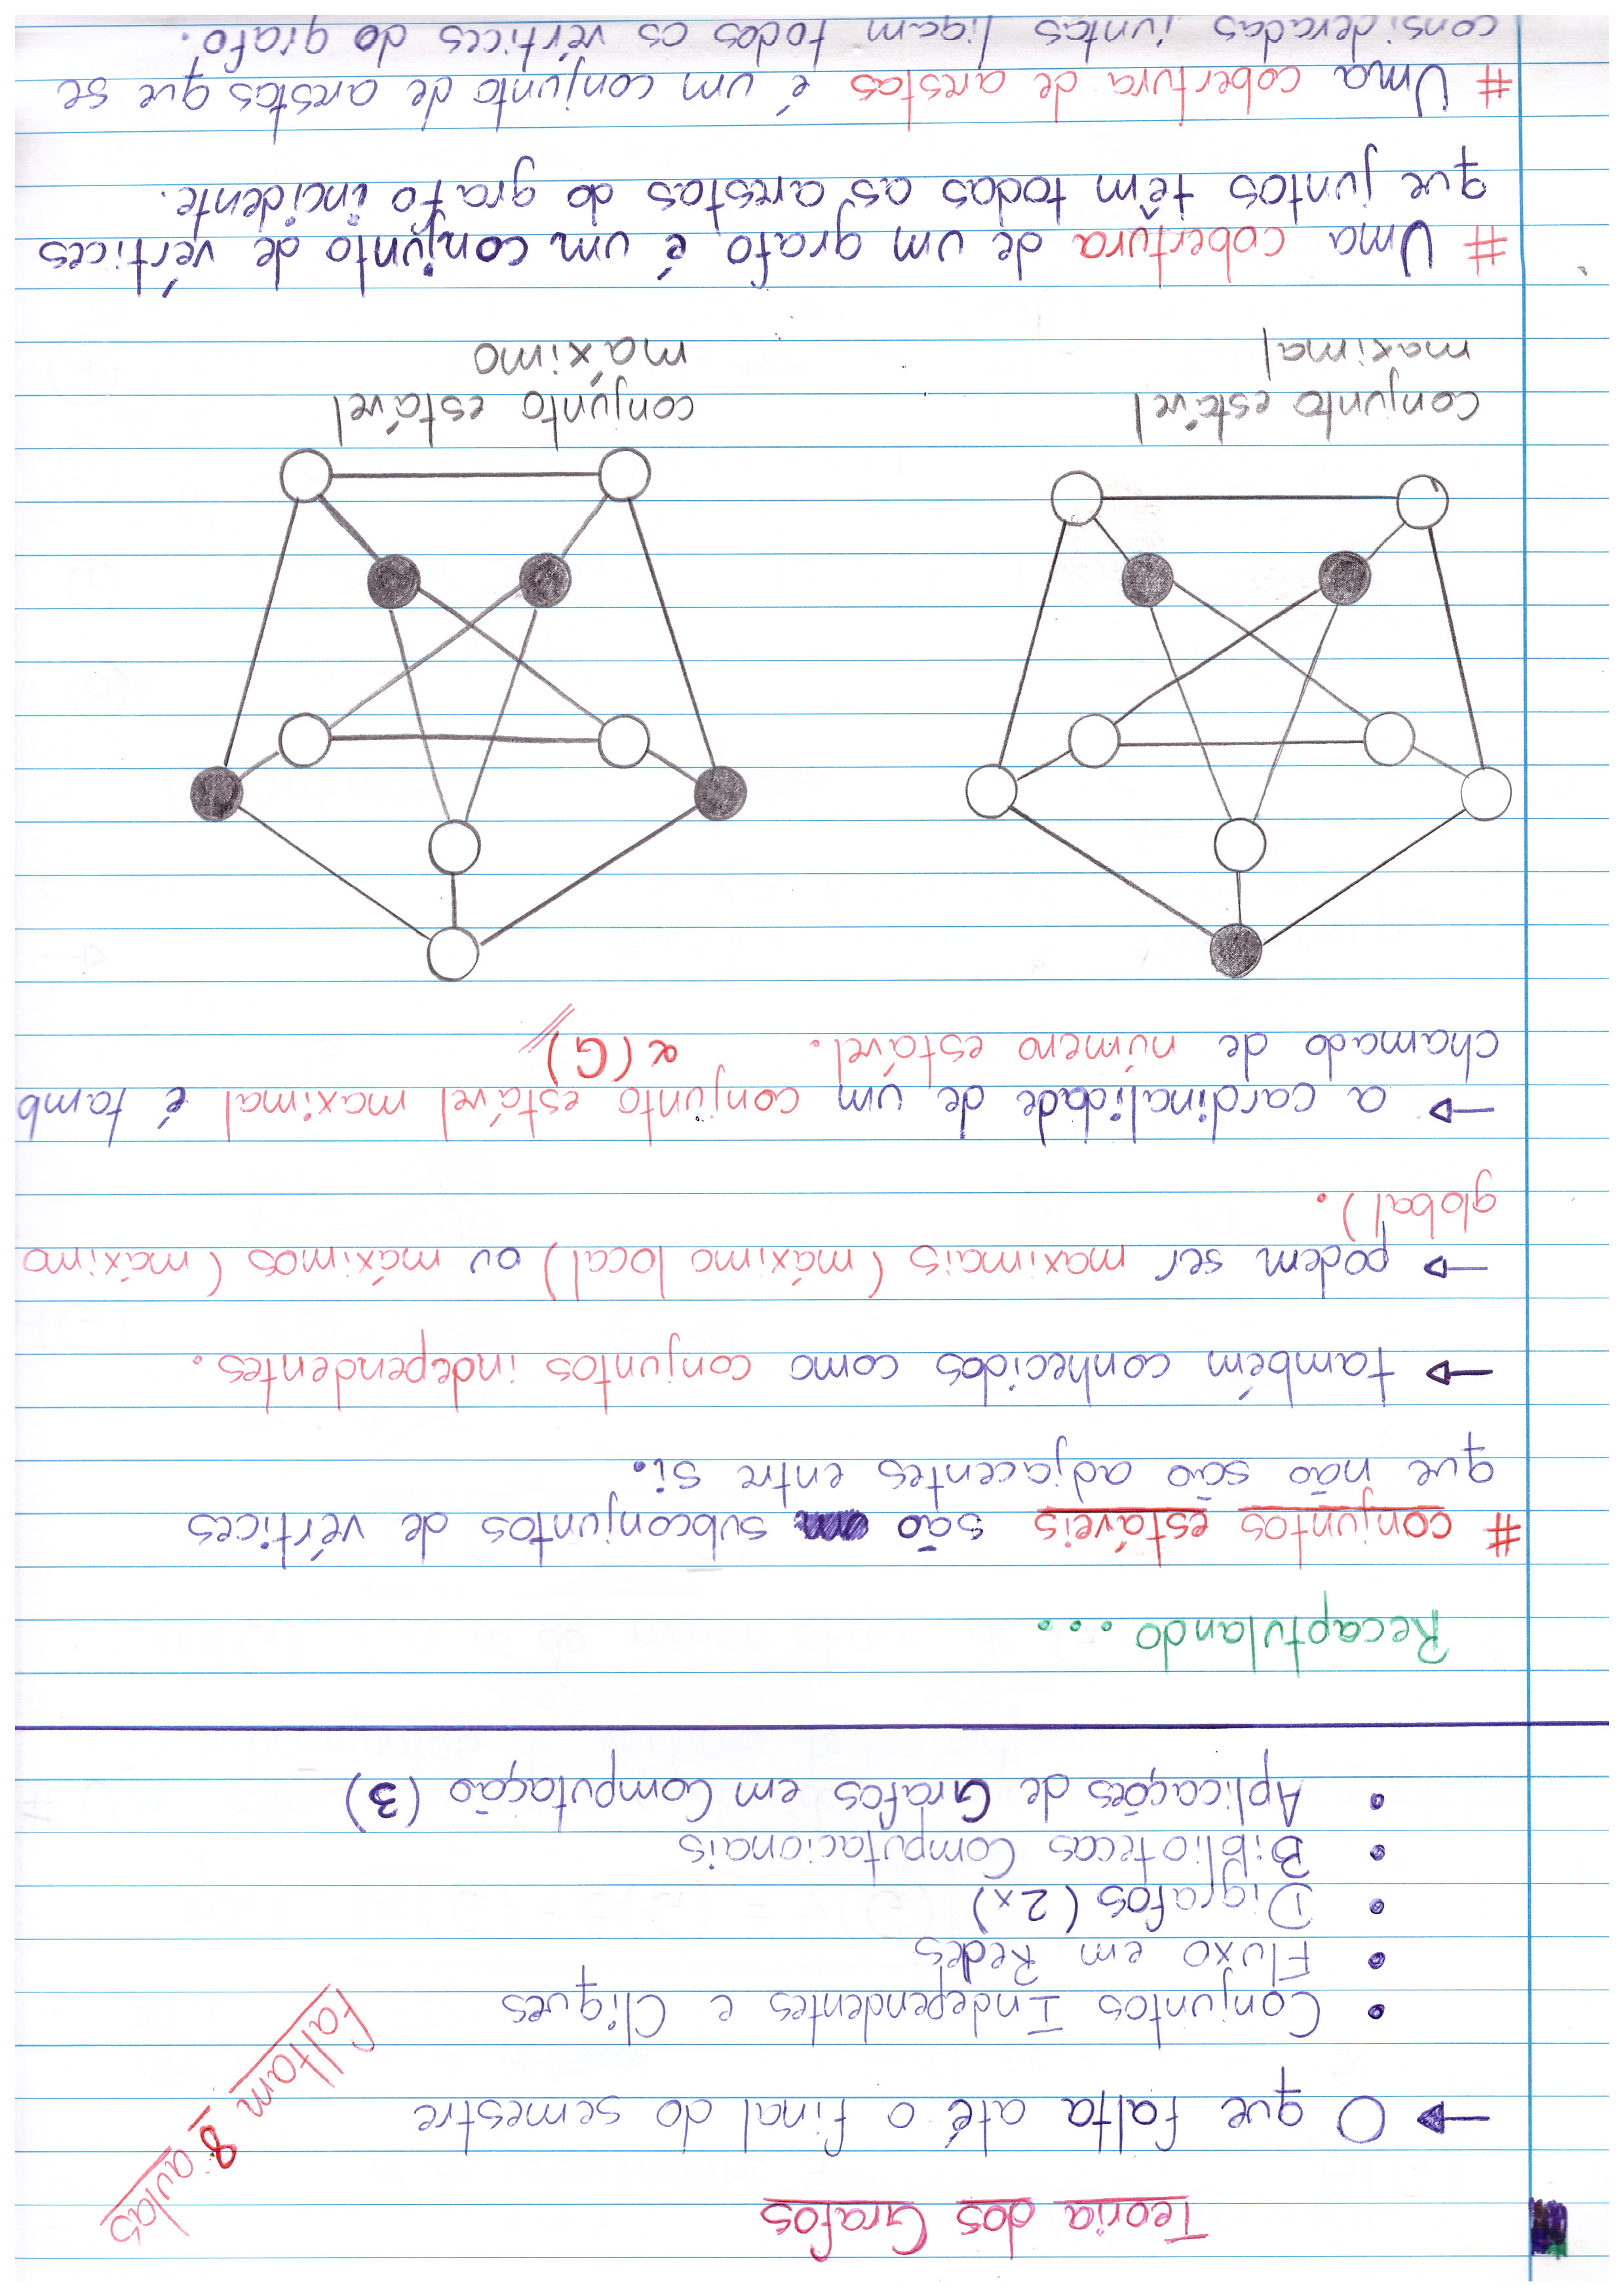 Teoria dos Grafos
faltam 8 aulas
→ O que falta até o final do semestre
• Conjuntos Independentes e Cliques
• Fluxo em Redes
• Digrafos (2x)
• Bibliotecas Computacionais
• Aplicações de Grafos em Computação (3)
Recaptulando...
# conjuntos estáveis são subconjuntos de vértices
que não são adjacentes entre si.
→ também conhecidos como conjuntos independentes.
→ podem ser maximais (máximo local) ou máximos (máximo
global).
→ a cardinalidade de um conjunto estável maximal é tamb
chamado de número estável. α(G)
conjunto estável
maximal
conjunto estável
máximo
# Uma cobertura de um grafo é um conjunto de vértices
que juntos têm todas as arestas do grafo incidente.
# Uma cobertura de arestas é um conjunto de arestas que se
consideradas juntas ligam todos os vértices do grafo.